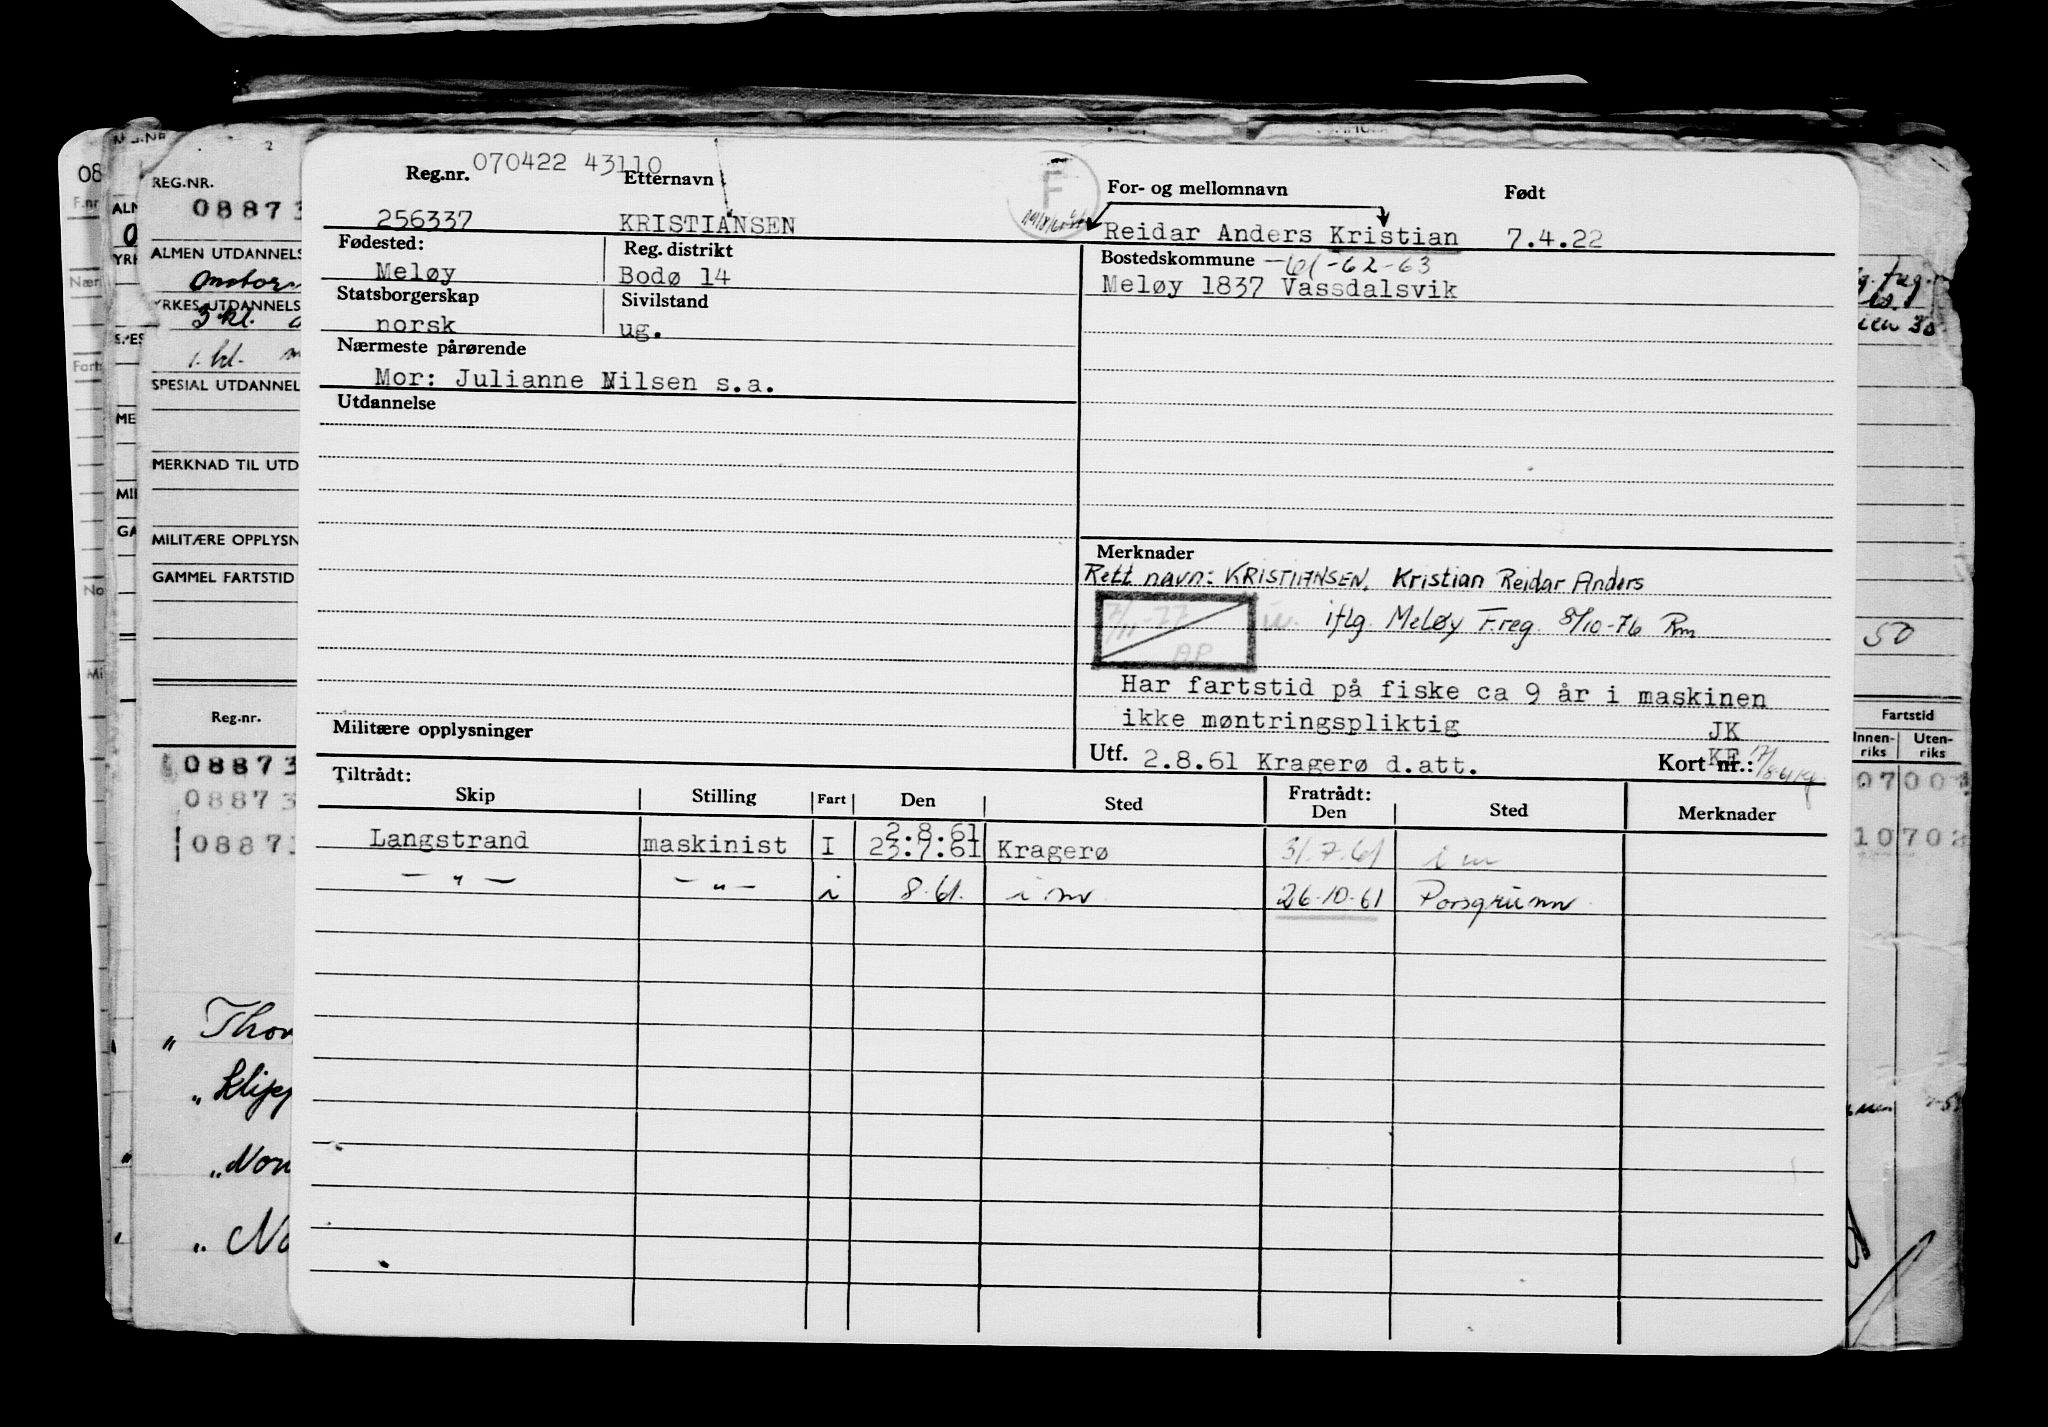 Reg.nr. 070422 43110 Etternavn For- og mellomnavn Født
256337 KRISTIANSEN Reidar Anders Kristian 7.4.22
F
Fødested: Reg. distrikt Bostedskommune -61-62-63
Meløy Bodø 14 Meløy 1837 Vassdalsvik
Statsborgerskap Sivilstand
norsk ug.
Nærmeste pårørende
Mor: Julianne Nilsen s.a.
Utdannelse
Merknader
Rett navn: KRISTIANSEN, Kristian Reidar Anders
7/11-77 iflg. Meløy F.reg. 8/10-76 Rm
AP
Har fartstid på fiske ca 9 år i maskinen
ikke møntringspliktig JK
Militære opplysninger
Utf. 2.8.61 Kragerø d.att. KF Kort nr.:
Tiltrådt: Fratrådt:
Skip Stilling Fart Den Sted Den Sted Merknader
2.8.61
Langstrand maskinist I 23.7.61 Kragerø 31.7.61 i m
— " — — " — i 8.61. i m 26.10.61 Porsgrunn
REG.NR.
08873
ALMEN UTDANNELS
YRKES UTDANNELS
3 kl.
1. kl.
SPESIAL UTDANNEL
MERKNAD TIL UTD
MILITÆRE OPPLYSN
GAMMEL FARTSTID
Reg.nr.
08873
08873
08873
„ Thor
„ Klipp
„ Nor
„ No
08
F.nr
Nær
Fart
No
Mi
ALM
YRK
SPES
ME
MIL
GA
50
Fartstid
Innen-riks Uten-riks
07 00
10 702